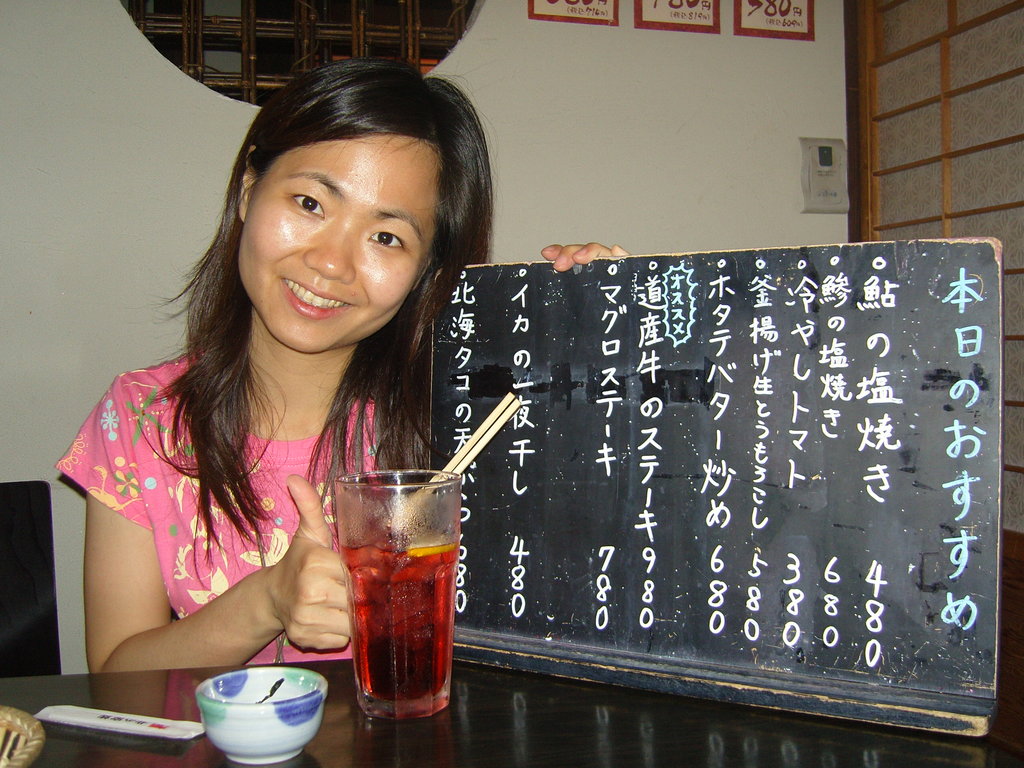 本日のおすすめ
鮎の塩焼き 480
鯵の塩焼き 680
冷やしトマト 380
釜揚げ生とうもろこし 580
ホタテバター炒め 680
オススメ
道産牛のステーキ 980
マグロステーキ 780
イカの一夜干し 480
北海タコの天ぷら 680
780円
(税込819円)
580円
(税込609円)